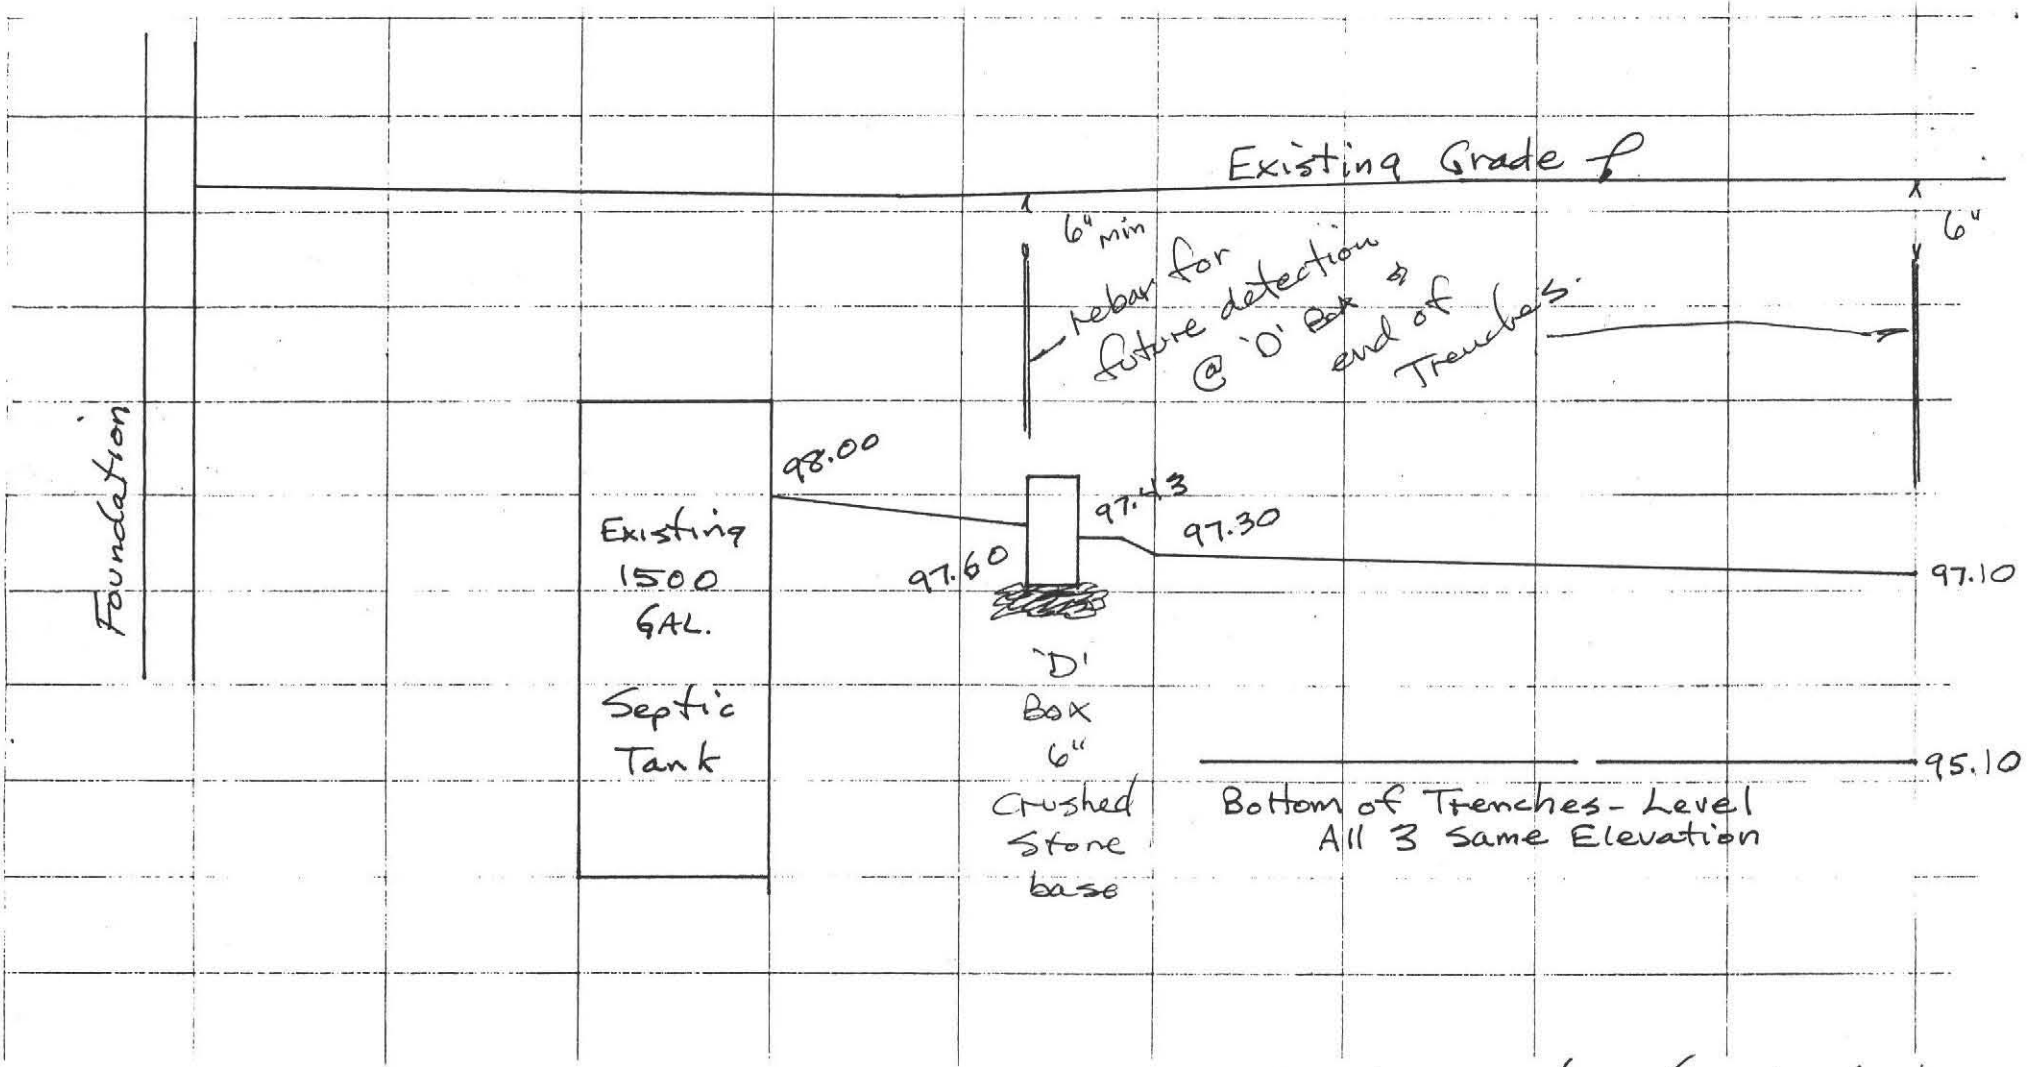 Existing Grade
6" min
6"
rebar for
future detection
@ 'D' Box &
end of
Trenches.
Foundation
98.00
97.43
97.30
97.60
97.10
Existing
1500
GAL.
Septic
Tank
'D'
Box
6"
Crushed
Stone
base
95.10
Bottom of Trenches - Level
All 3 Same Elevation